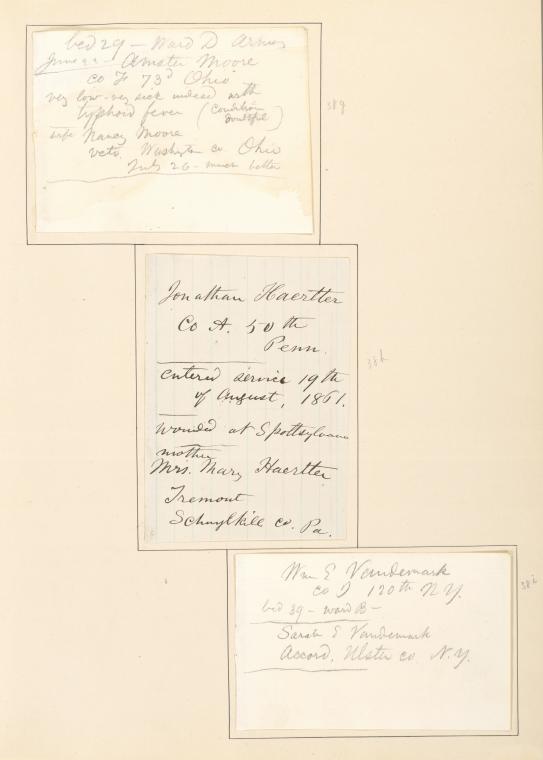 bed 29 - Ward D Armory
June 22 - Amster Moore
co F 73d Ohio
very low - very sick indeed with
typhoid fever (condition
doubtful)
wife Nancy Moore
Veto Washington co. Ohio
July 26 - much better
38g
Jonathan Haertter
Co A. 50th
Penn.
entered service 19th
of August, 1861.
wounded at Spottsylvania
mother
Mrs. Mary Haertter
Tremont
Schuylkill co. Pa.
38h
Wm E Vandemark
co I 120th N Y.
bed 39 - ward B -
Sarah E Vandemark
Accord, Ulster co. N.Y.
38i